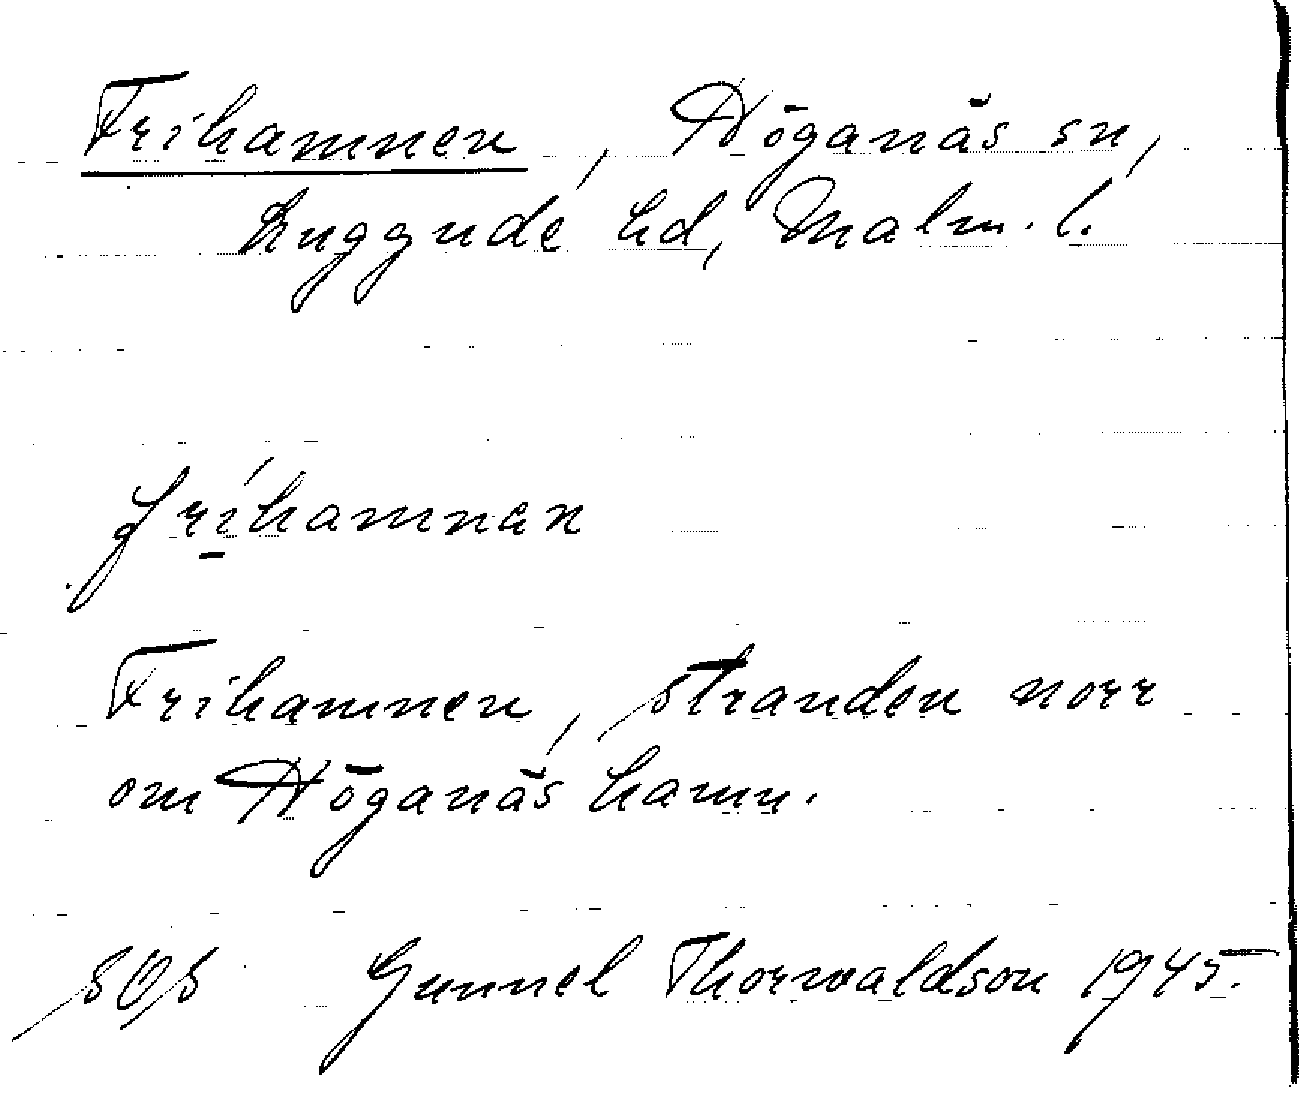 Frihamnen, Höganäs sn,
Luggude hd, Malm. l.
frihamnen
Frihamnen, stranden norr
om Höganäs hamn.
SOS Gunnel Thorwaldson 1945.